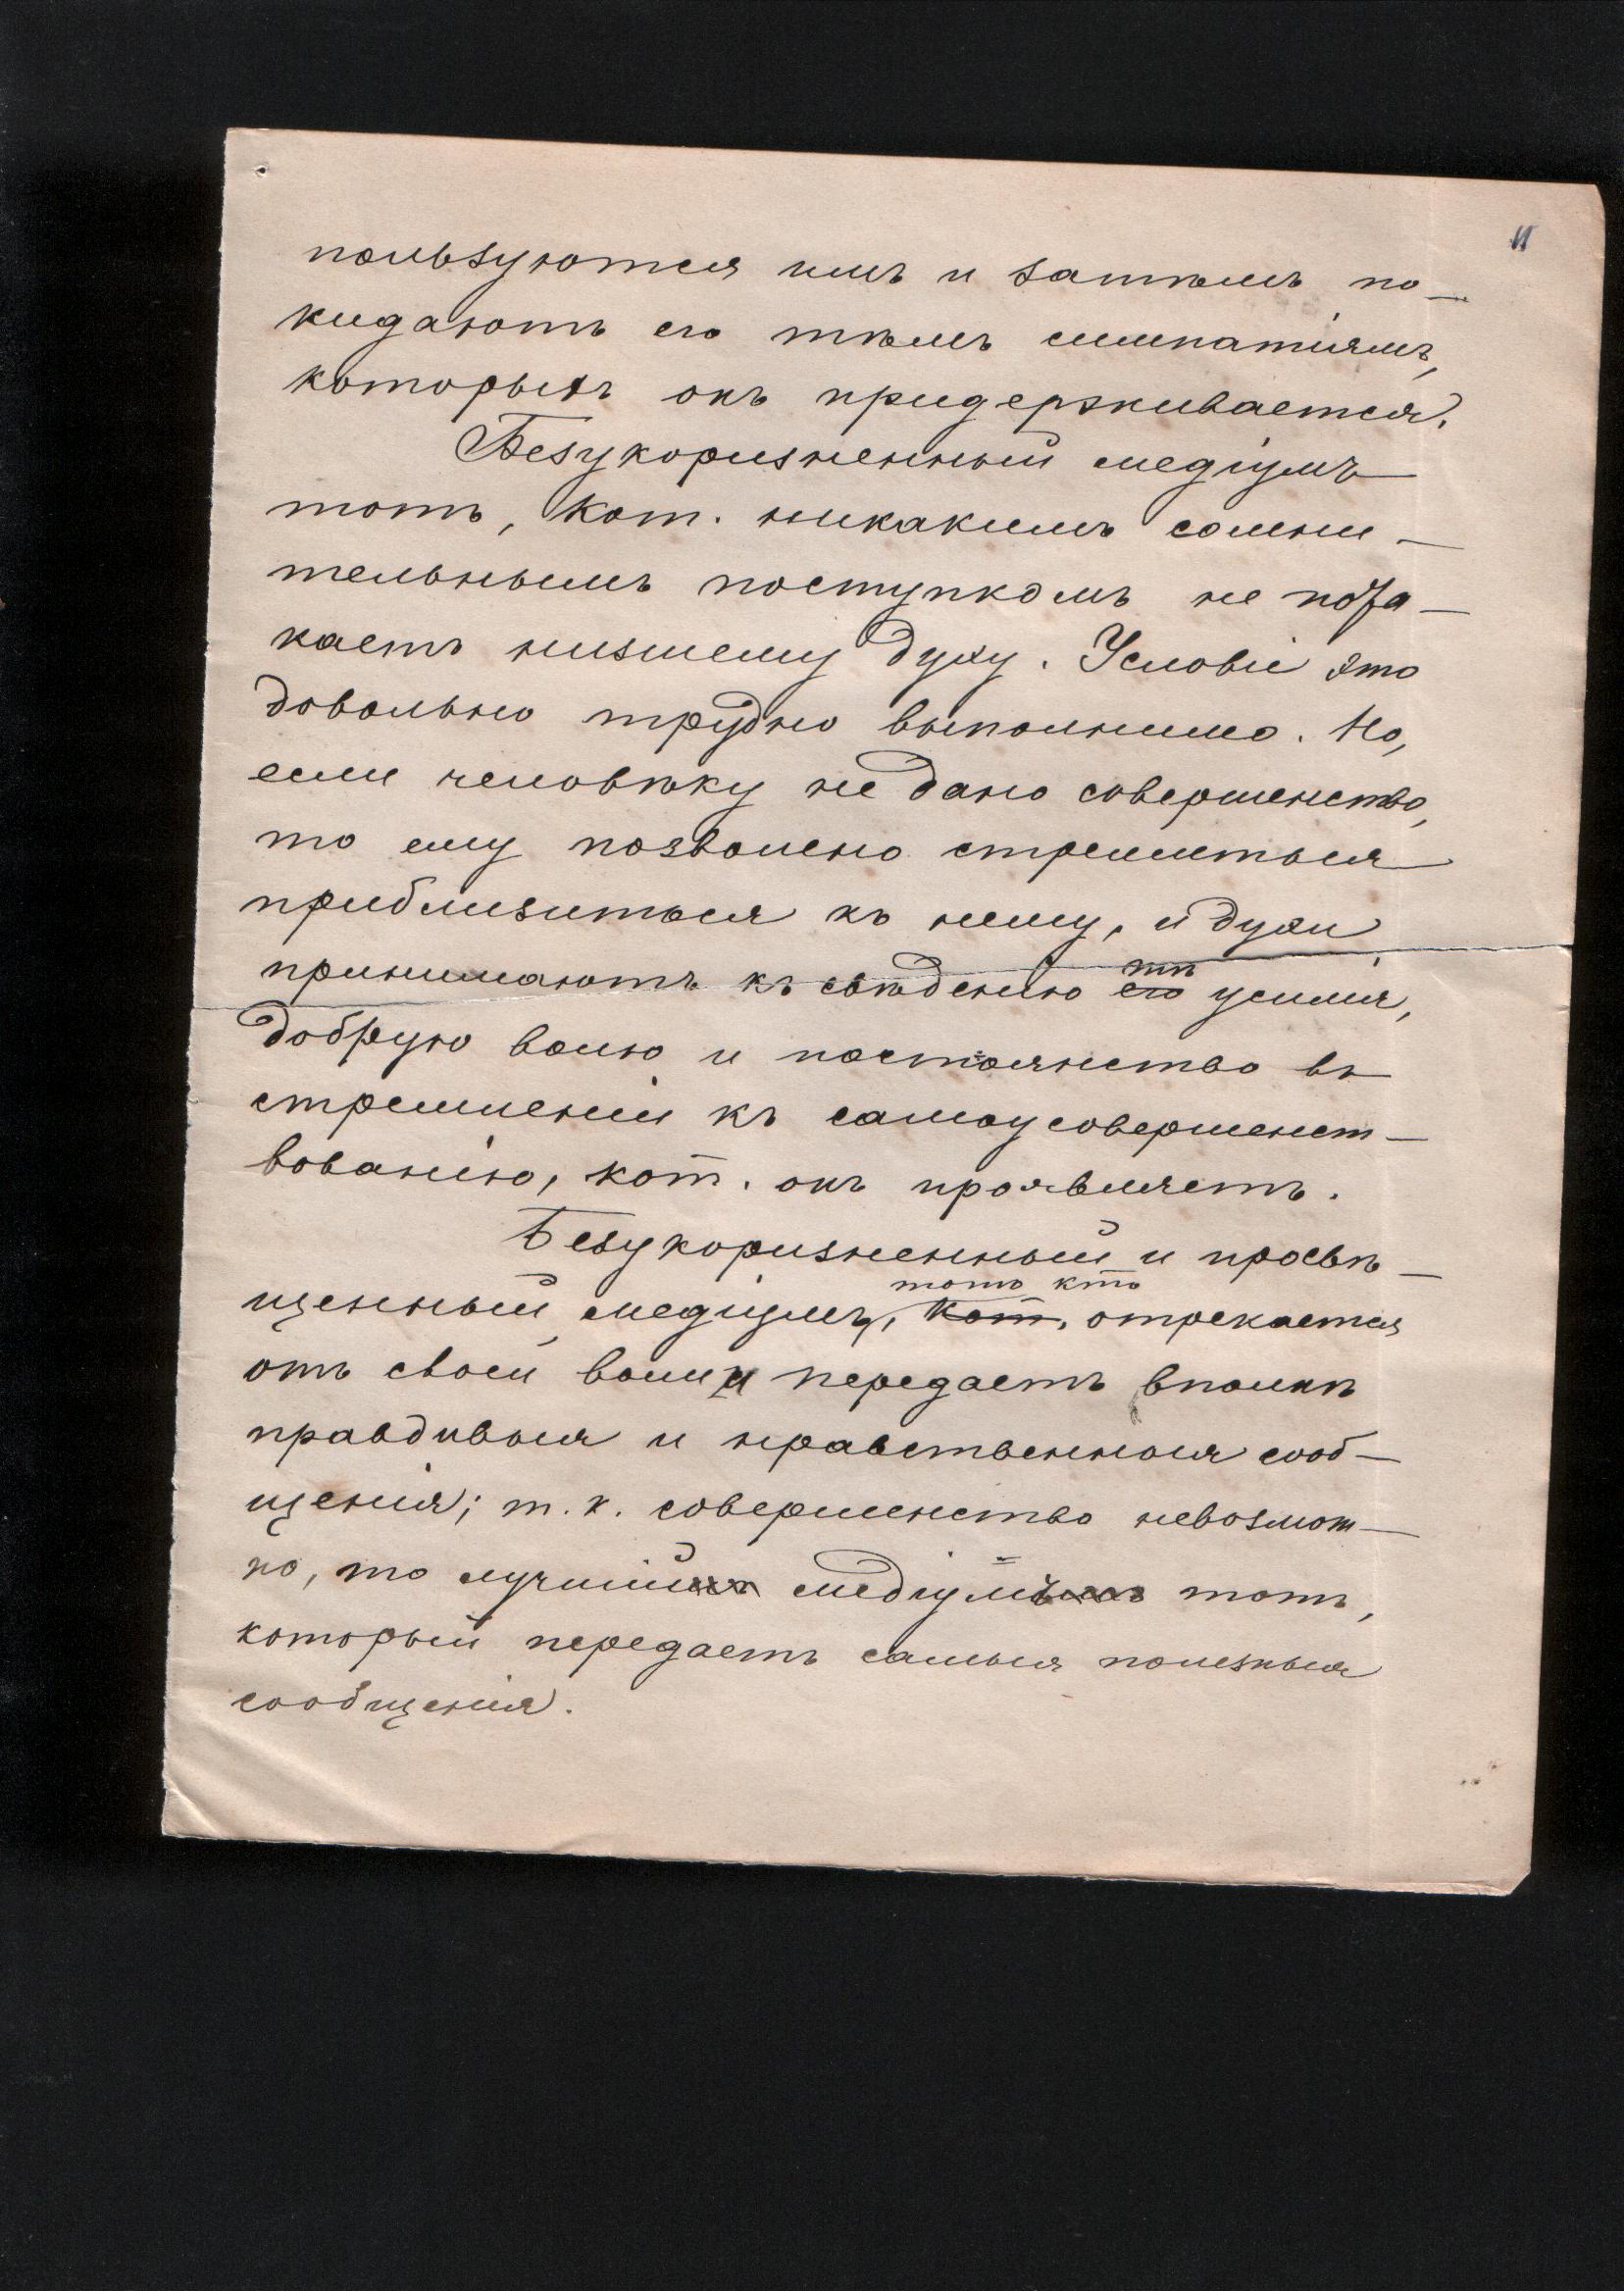 11
пользуются имъ и затѣмъ по-
кидаютъ его тѣмъ симпатіямъ,
которыхъ онъ придерживается.
Безукоризненный медіумъ
тотъ, кот. никакимъ сомни-
тельнымъ поступкомъ не пота-
каетъ низшему духу. Условіе это
довольно трудно выполнимо. Но,
если человѣку не дано совершенство,
то ему позволено стремиться
приблизиться къ нему, и духи
принимаютъ къ свѣдѣнію его тѣ усилія,
добрую волю и постоянство въ
стремленіи къ самоусовершенст-
вованію, кот. онъ проявляетъ.
Безукоризненный и просвѣ-
щенный медіумъ, кот. тотъ кто отрекается
отъ своей воли и передаетъ вполнѣ
правдивыя и нравственныя сооб-
щенія; т. к. совершенство невозмож-
но, то лучшій медіумъ тотъ,
который передаетъ самыя полезныя
сообщенія.